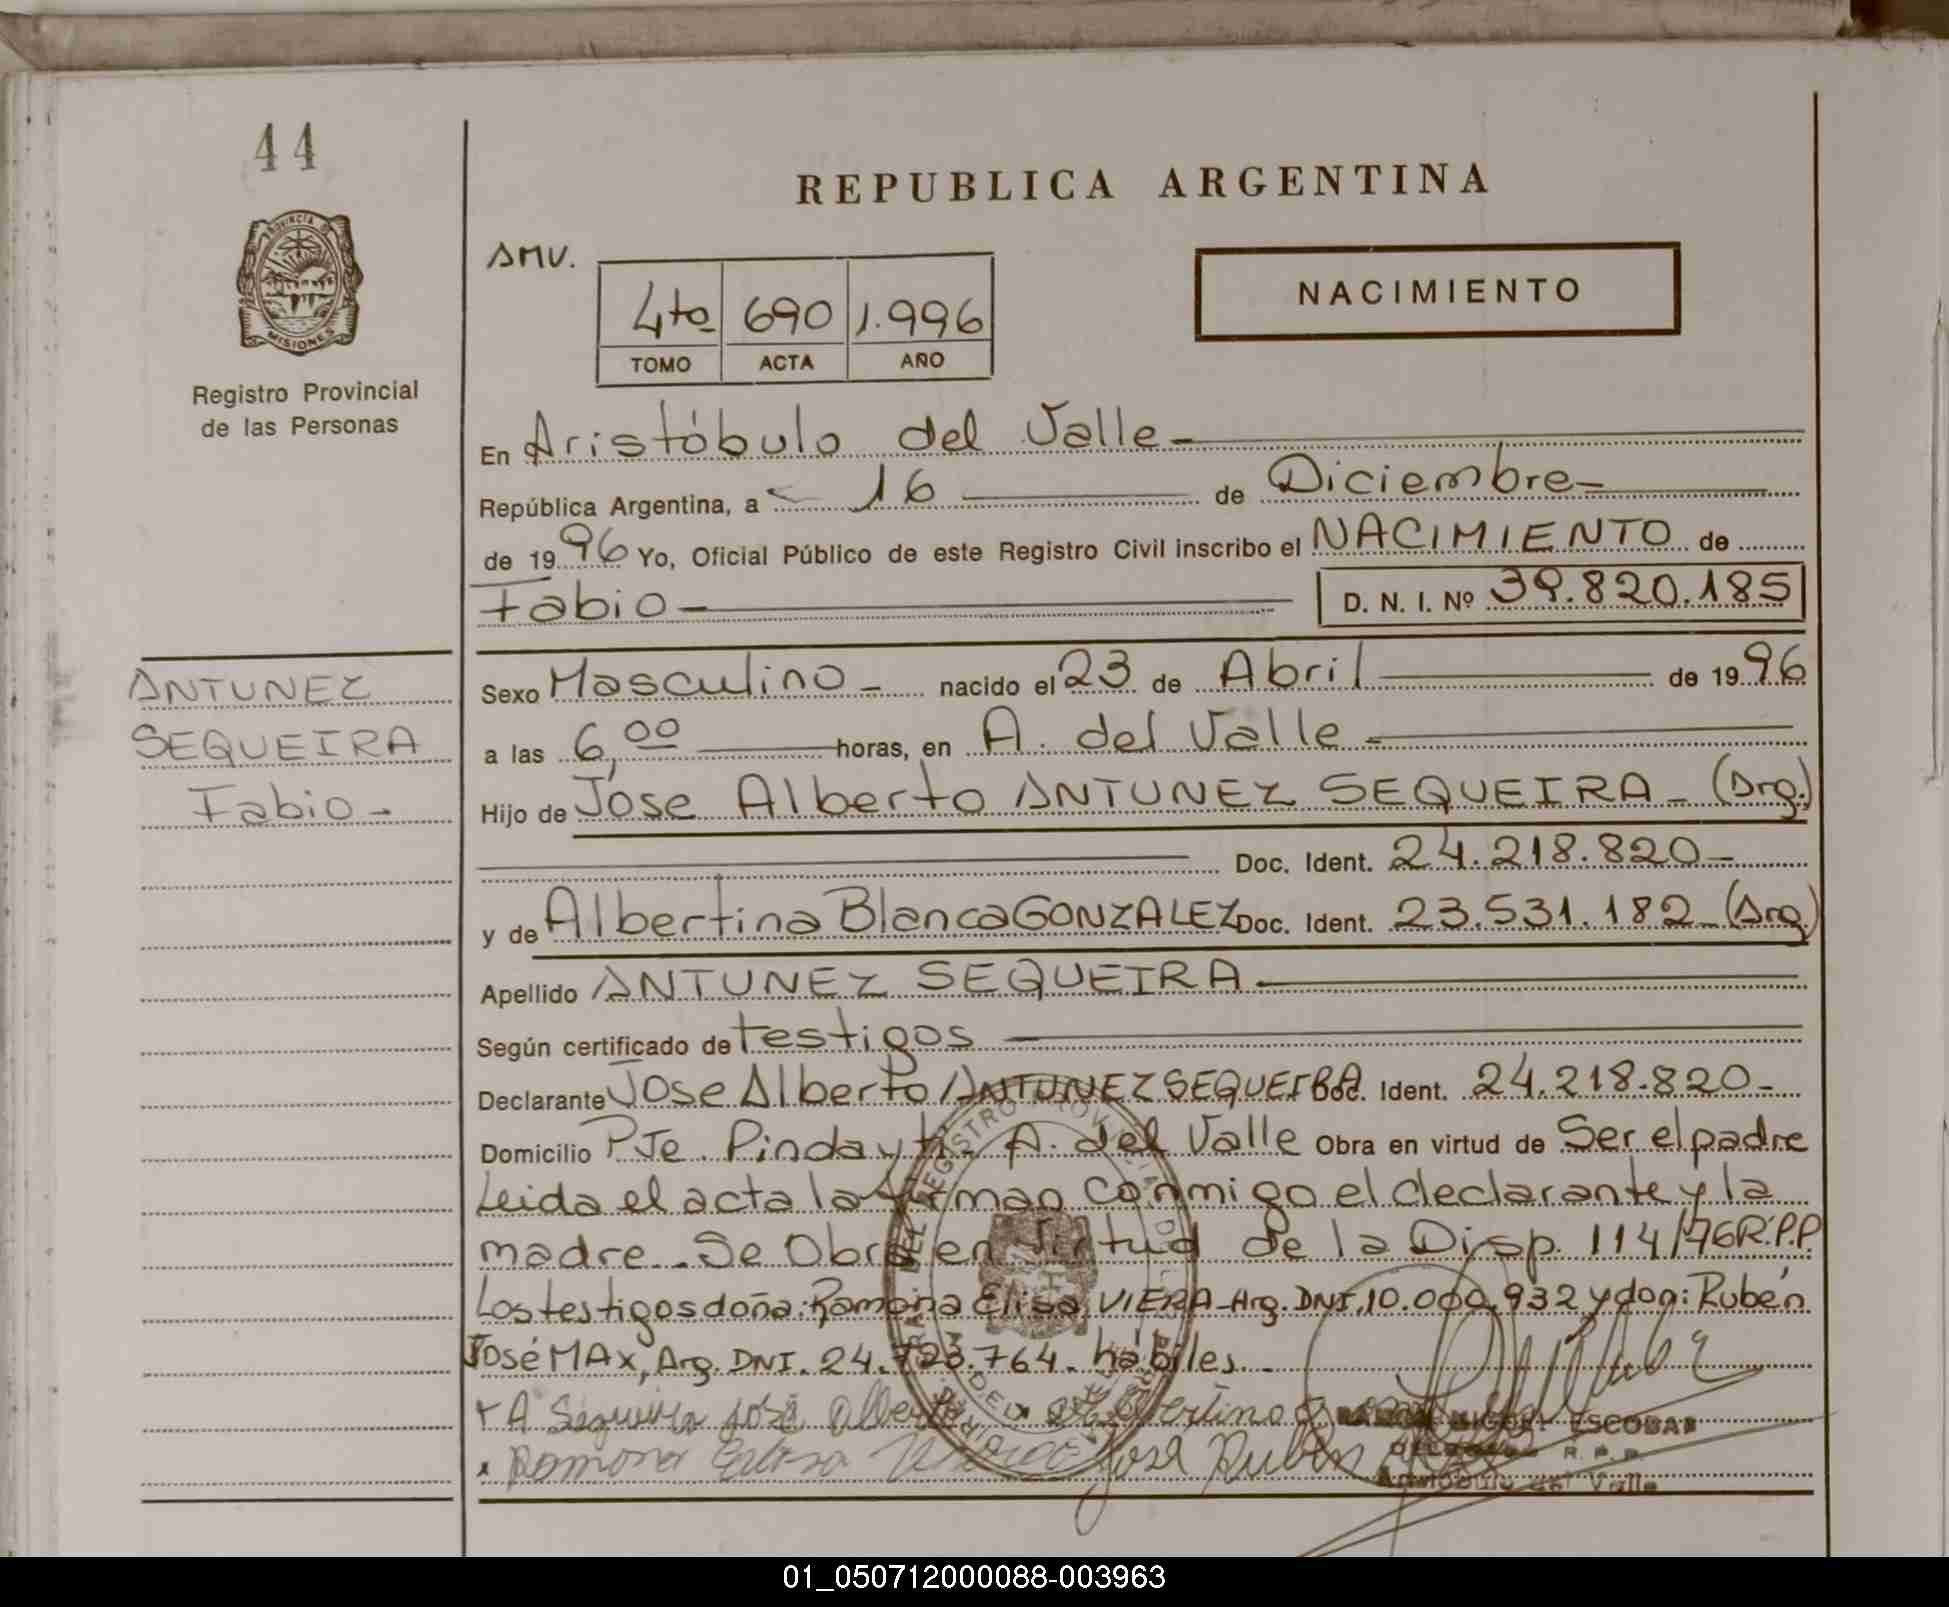 44
PROVINCIA DE
MISIONES
Registro Provincial
de las Personas
ANTUNEZ
SEQUEIRA
Fabio -
REPUBLICA ARGENTINA
AMV.
4to 690 1.996
TOMO ACTA AÑO
NACIMIENTO
En Aristóbulo del Valle -
República Argentina, a 16 de Diciembre -
de 1996 Yo, Oficial Público de este Registro Civil inscribo el NACIMIENTO de
Fabio - D. N. I. Nº 39.820.185
Sexo Masculino - nacido el 23 de Abril de 1996
a las 6,00 horas, en A. del Valle -
Hijo de Jose Alberto ANTUNEZ SEQUEIRA - (Arg.)
Doc. Ident. 24.218.820 -
y de Albertina Blanca GONZALEZ Doc. Ident. 23.531.182 - (Arg.)
Apellido ANTUNEZ SEQUEIRA
Según certificado de testigos
Declarante Jose Alberto ANTUNEZ SEQUEIRA Doc. Ident. 24.218.820 -
Domicilio Pje. Pindayti - A. del Valle Obra en virtud de Ser el padre
Leida el acta la firman conmigo el declarante y la
madre - Se Obra en Virtud de la Disp. 114/76 R.P.P.
Los testigos doña: Ramona Elisa VIERA - Arg. DNI. 10.000.932 y don: Rubén
José MAX, Arg. DNI. 24.723.764 - hábiles -
A Sequeira José Alberto Albertina
Ramona Elisa Viera José Ruben
RAMON MIGUEL ESCOBAR
DELEGADO R. P. P.
Aristóbulo del Valle
01_050712000088-003963